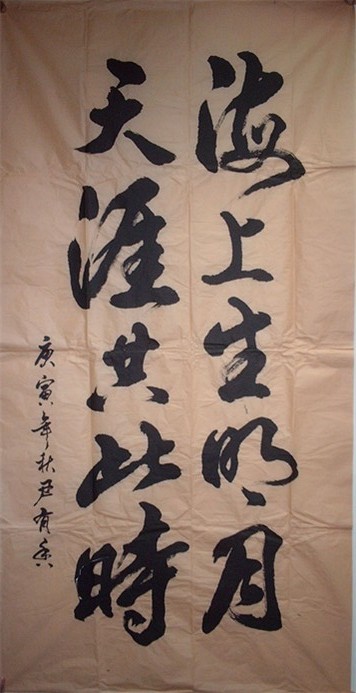 海上生明月
天涯共此時
庚寅年秋尹有